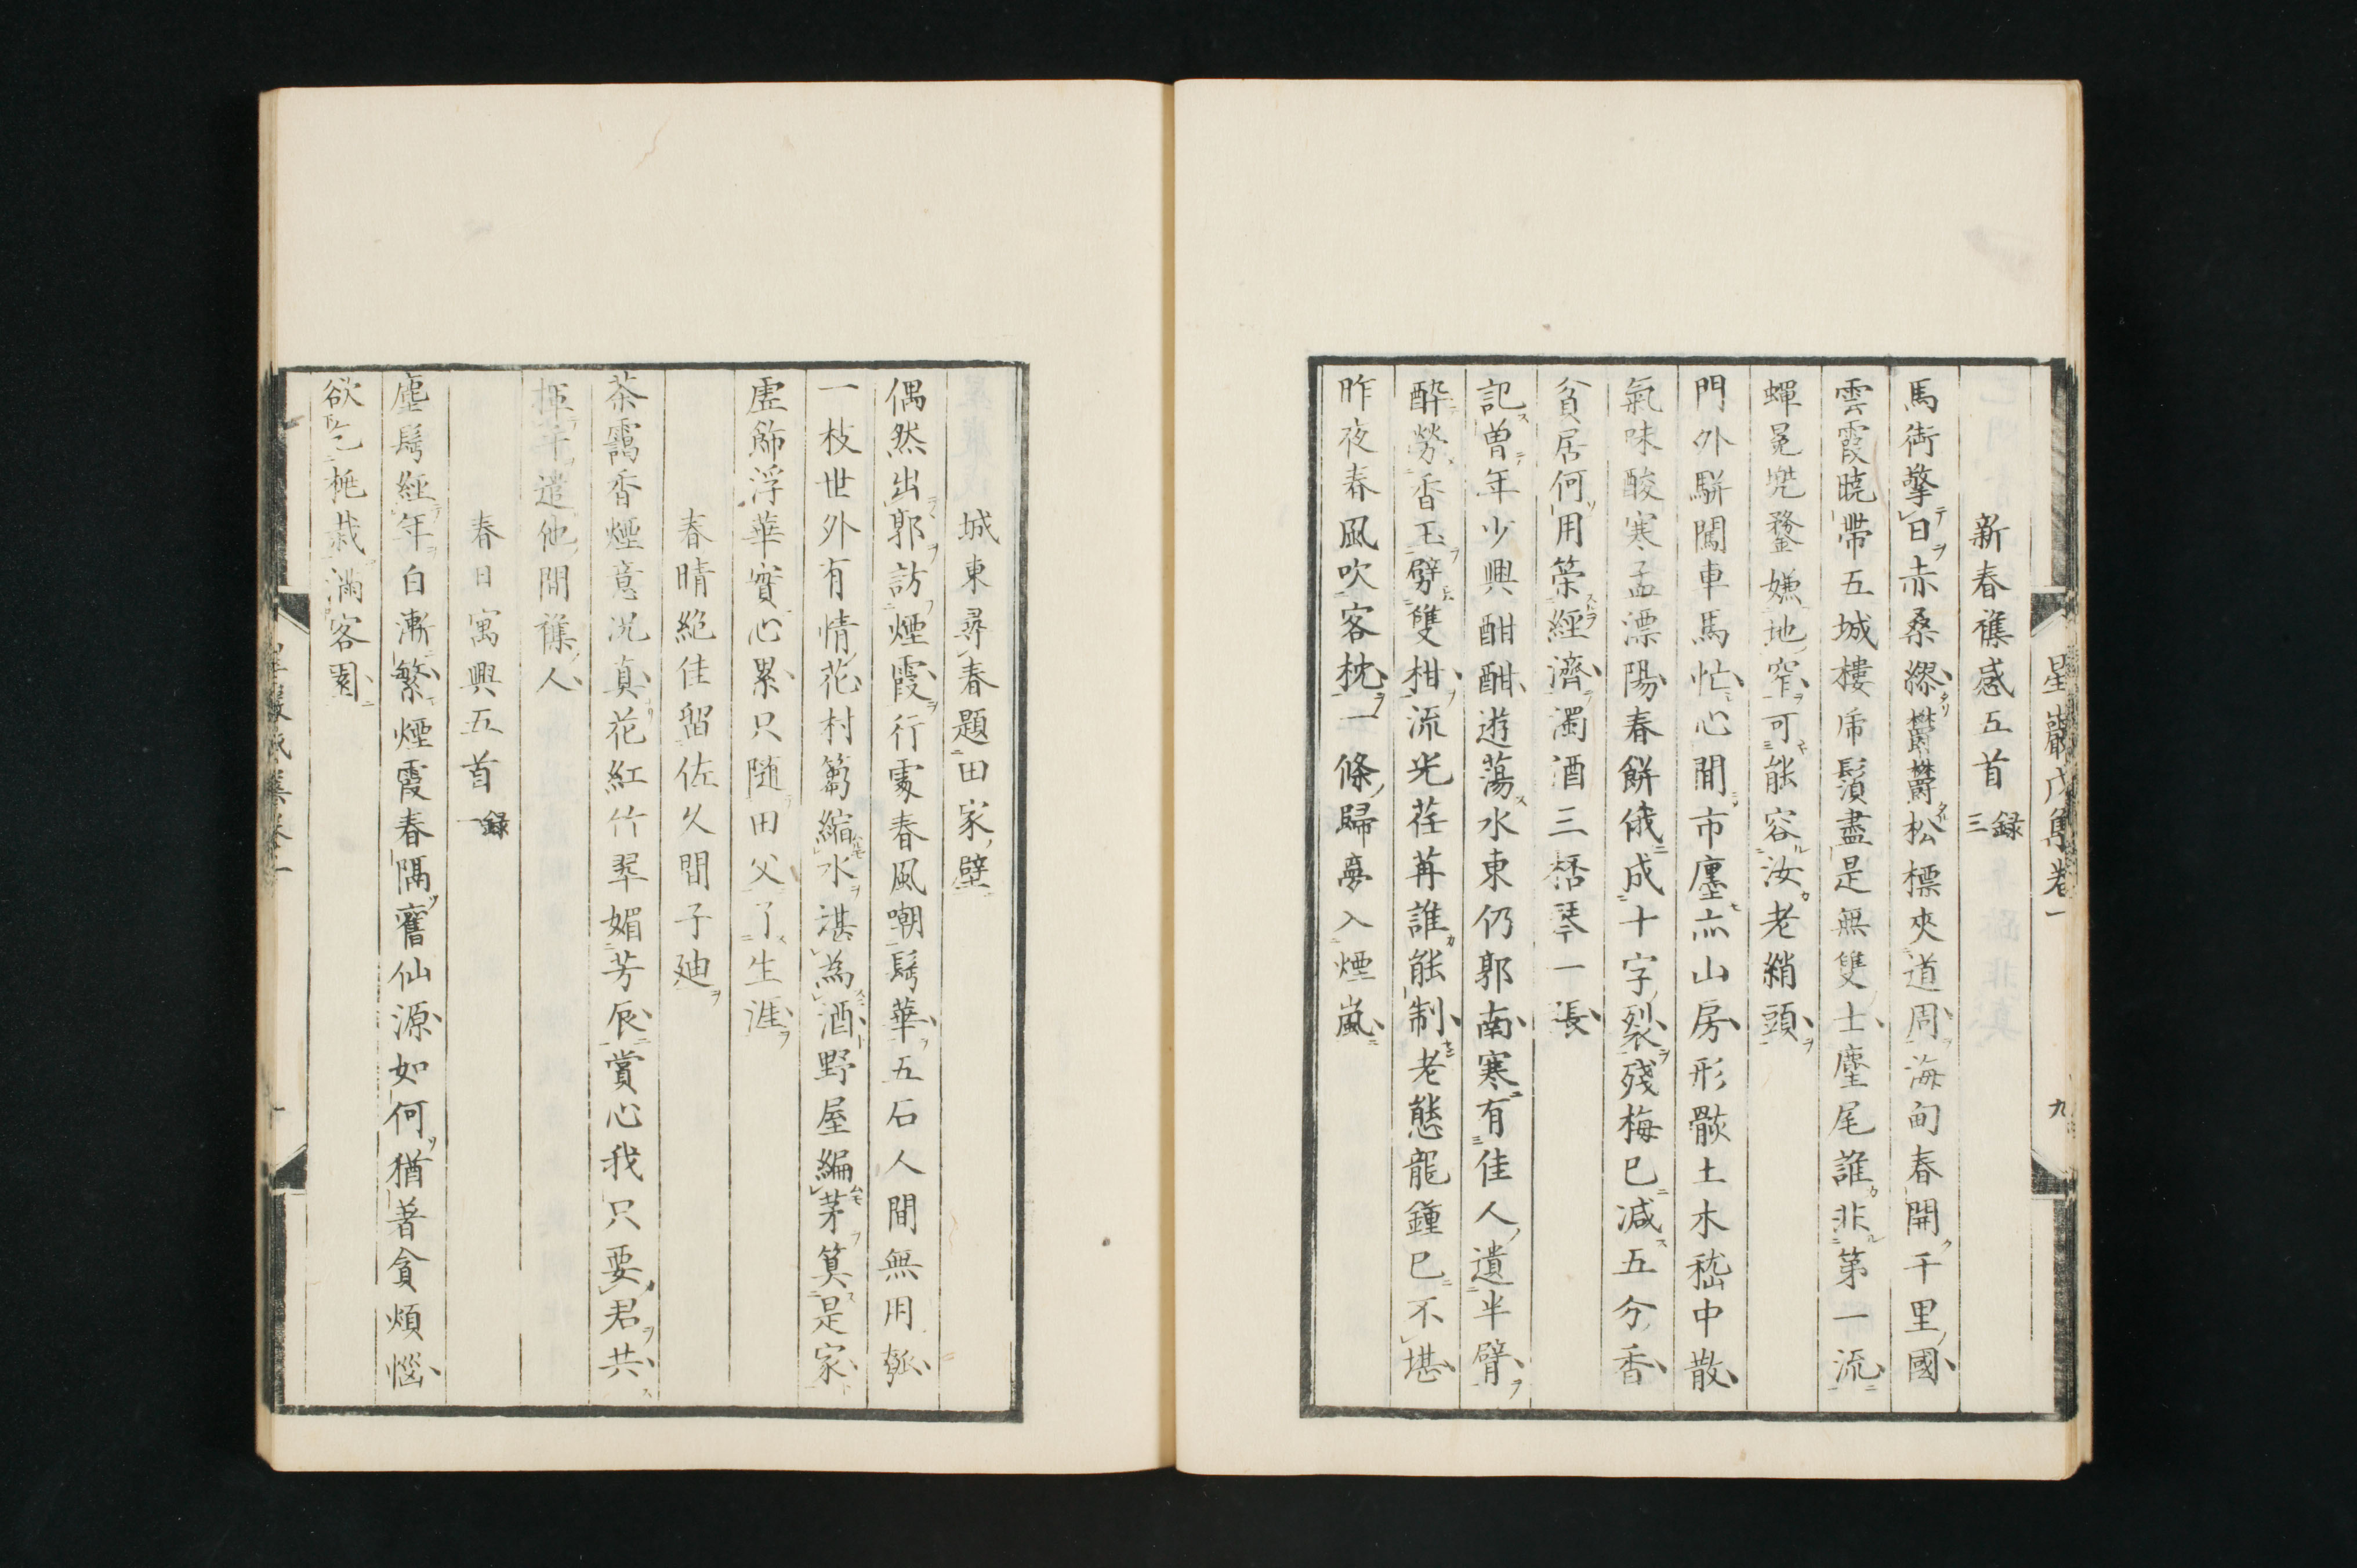 星巖戊集卷一
九
新春雜感五首 錄三
馬衘擎日赤桑繆欝欝松標夾道周海甸春開千里國
雲霞曉帶五城樓帋鬚盡是無雙士麈尾誰非第一流
蟬冕兠鍪嫌地窄可能容汝老綃頭
門外駢闐車馬忙心閒市廛亦山房形骸土木嵇中散
氣味酸寒孟溧陽春餅俄成十字裂殘梅已減五分香
貧居何用策經濟濁酒三桮琴一張
記曾年少興酣酣遊蕩水東仍郭南寒有佳人遺半臂
醉勞香玉劈雙柑流光荏苒誰能制老態龍鍾已不堪
昨夜春風吹客枕一條歸夢入煙嵐
城東尋春題田家壁
偶然出郭訪煙霞行處春風嘲髩華五石人間無用瓠
一枝世外有情花村篘縮水湛為酒野屋編茅算是家
虛飾浮華實心累只随田父了生涯
春晴絶佳留佐久間子廸
茶靄香煙意況真花紅竹翠媚芳辰賞心我只要君共
揮手遣他閒雜人
春日寓興五首 錄一
塵髩經年白漸繁煙霞春隔舊仙源如何猶著貪煩惱
欲乞桃栽滿客園